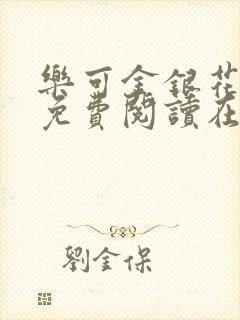 樂可金銀花
免費閱讀在
劉金保